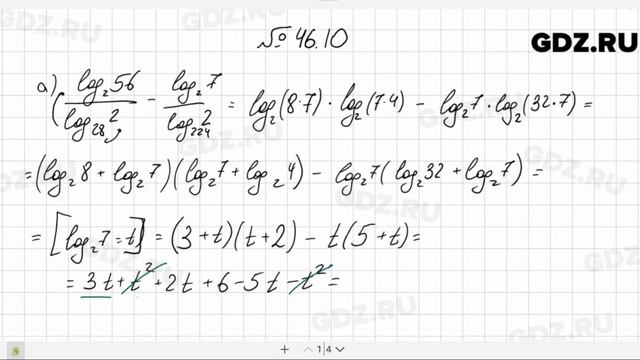 № 46.10
GDZ.RU
а) (log₂56 / log₂₈2 - log₂7 / log₂₂₄2 = log₂(8·7) · log₂(7·4) - log₂7 · log₂(32·7) =
= (log₂8 + log₂7)(log₂7 + log₂4) - log₂7(log₂32 + log₂7) =
= [log₂7 = t] = (3+t)(t+2) - t(5+t) =
= 3t + t² + 2t + 6 - 5t - t² =
1 4